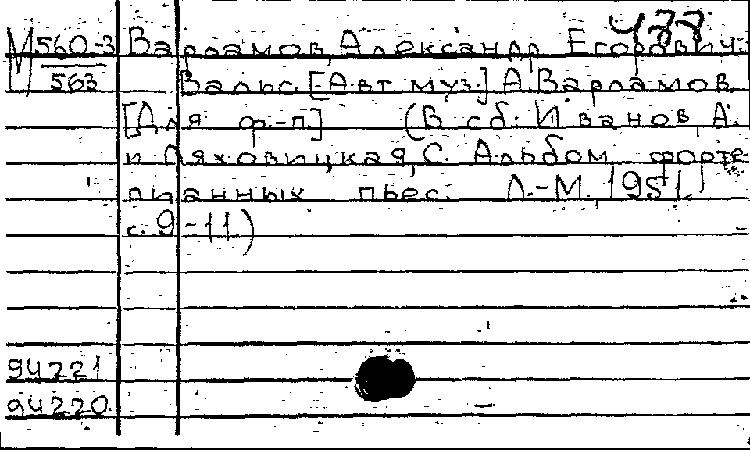 477
М 560-3 Варламов, Александр Егорович.
563 Вальс. [Авт муз.] А. Варламов.
[Для ф.-п.] (В сб: Иванов А.
и Ляховицкая, С. Альбом форте
пианных пьес. Л.-М., 1951,
с. 9-11.)
94221
94220